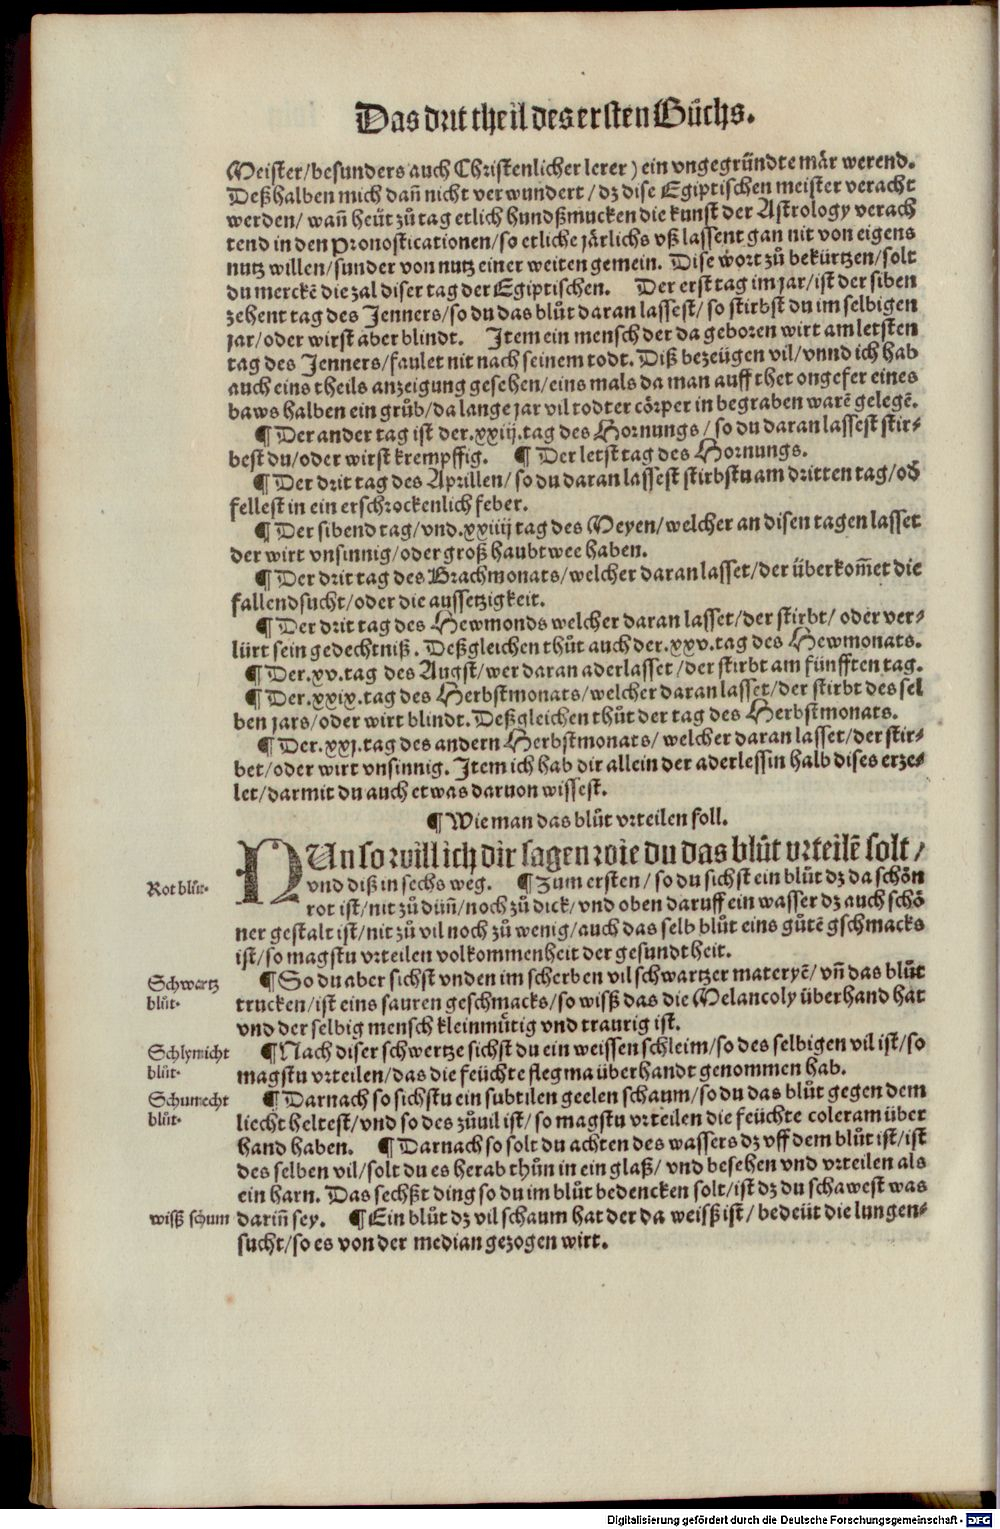 Das drit theil des ersten Bůchs.
Meister/besunders auch Christenlicher lerer) ein vngegründte mär werend.
Deßhalben mich dañ nicht verwundert/dz dise Egiptischen meister veracht
werden/wañ heüt zů tag etlich hundßmucken die kunst der Astrology verach
tend in den Pronosticationen/so etliche järlichs vß lassent gan nit von eigens
nutz willen/sunder von nutz einer weiten gemein. Dise wort zů bekürtzen/solt
du merckē die zal diser tag der Egiptischen. Der erst tag im jar/ist der siben
zehent tag des Jenners/so du das blůt daran lassest/so stirbst du im selbigen
jar/oder wirst aber blindt. Item ein mensch der da geboren wirt am letsten
tag des Jenners/faulet nit nach seinem todt. Diß bezeügen vil/vnnd ich hab
auch eins theils anzeigung gesehen/eins mals da man auff thet ongefer eines
baws halben ein grůb/da lange jar vil todter cörper in begraben warē gelegē.
¶ Der ander tag ist der.xxiij.tag des Hornungs/so du daran lassest stir-
best du/oder wirst krempffig. ¶ Der letst tag des Hornungs.
¶ Der drit tag des Aprillen/so du daran lassest stirbstu am dritten tag/od̄
fellest in ein erschrockenlich feber.
¶ Der sibend tag/vnd.xxiiij tag des Meyen/welcher an disen tagen lasset
der wirt vnsinnig/oder groß haubtwee haben.
¶ Der drit tag des Brachmonats/welcher daran lasset/der überkom̄et die
fallendsucht/oder die aussetzigkeit.
¶ Der drit tag des Hewmonds welcher daran lasset/der stirbt/oder ver-
lürt sein gedechtniß. Deßgleichen thůt auch der.xxv.tag des Hewmonats.
¶ Der.xv.tag des Augst/wer daran aderlasset/der stirbt am fünfften tag.
¶ Der.xxix.tag des Herbstmonats/welcher daran lasset/der stirbt des sel
ben jars/oder wirt blindt. Deßgleichen thůt der tag des Herbstmonats.
¶ Der.xxj.tag des andern Herbstmonats/welcher daran lasset/der stir-
bet/oder wirt vnsinnig. Item ich hab dir allein der aderlessin halb dises erze-
let/darmit du auch etwas daruon wissest.
¶ Wie man das blůt vrteilen soll.
NUn so will ich dir sagen wie du das blůt vrteilē solt/
Rot blůt.
vnd diß in sechs weg. ¶ Zum ersten/so du sichst ein blůt dz da schön
rot ist/nit zů dünn̄/noch zů dick/vnd oben daruff ein wasser dz auch schö
ner gestalt ist/nit zů vil noch zů wenig/auch das selb blůt eins gůtē gschmacks
ist/so magstu vrteilen volkommenheit der gesundtheit.
Schwartz
blůt.
¶ So du aber sichst vnden im scherben vil schwartzer materyē/vñ das blůt
trucken/ist eins sauren geschmacks/so wisß das die Melancoly überhand hat
vnd der selbig mensch kleinmůtig vnd traurig ist.
Schlymicht
blůt.
¶ Nach diser schwertze sichst du ein weissen schleim/so des selbigen vil ist/so
magstu vrteilen/das die feüchte flegma überhandt genommen hab.
Schumecht
blůt.
¶ Darnach so sichstu ein subtilen geelen schaum/so du das blůt gegen dem
liecht heltest/vnd so des zůuil ist/so magstu vrteilen die feüchte coleram über
hand haben. ¶ Darnach so solt du achten des wassers dz vff dem blůt ist/ist
des selben vil/solt du es herab thůn in ein glaß/vnd besehen vnd vrteilen als
ein harn. Das sechßt ding so du im blůt bedencken solt/ist dz du schawest was
wisß schum
dariñ sey. ¶ Ein blůt dz vil schaum hat der da weisß ist/bedeüt die lungen-
sucht/so es von der median gezogen wirt.
Digitalisierung gefördert durch die Deutsche Forschungsgemeinschaft - DFG